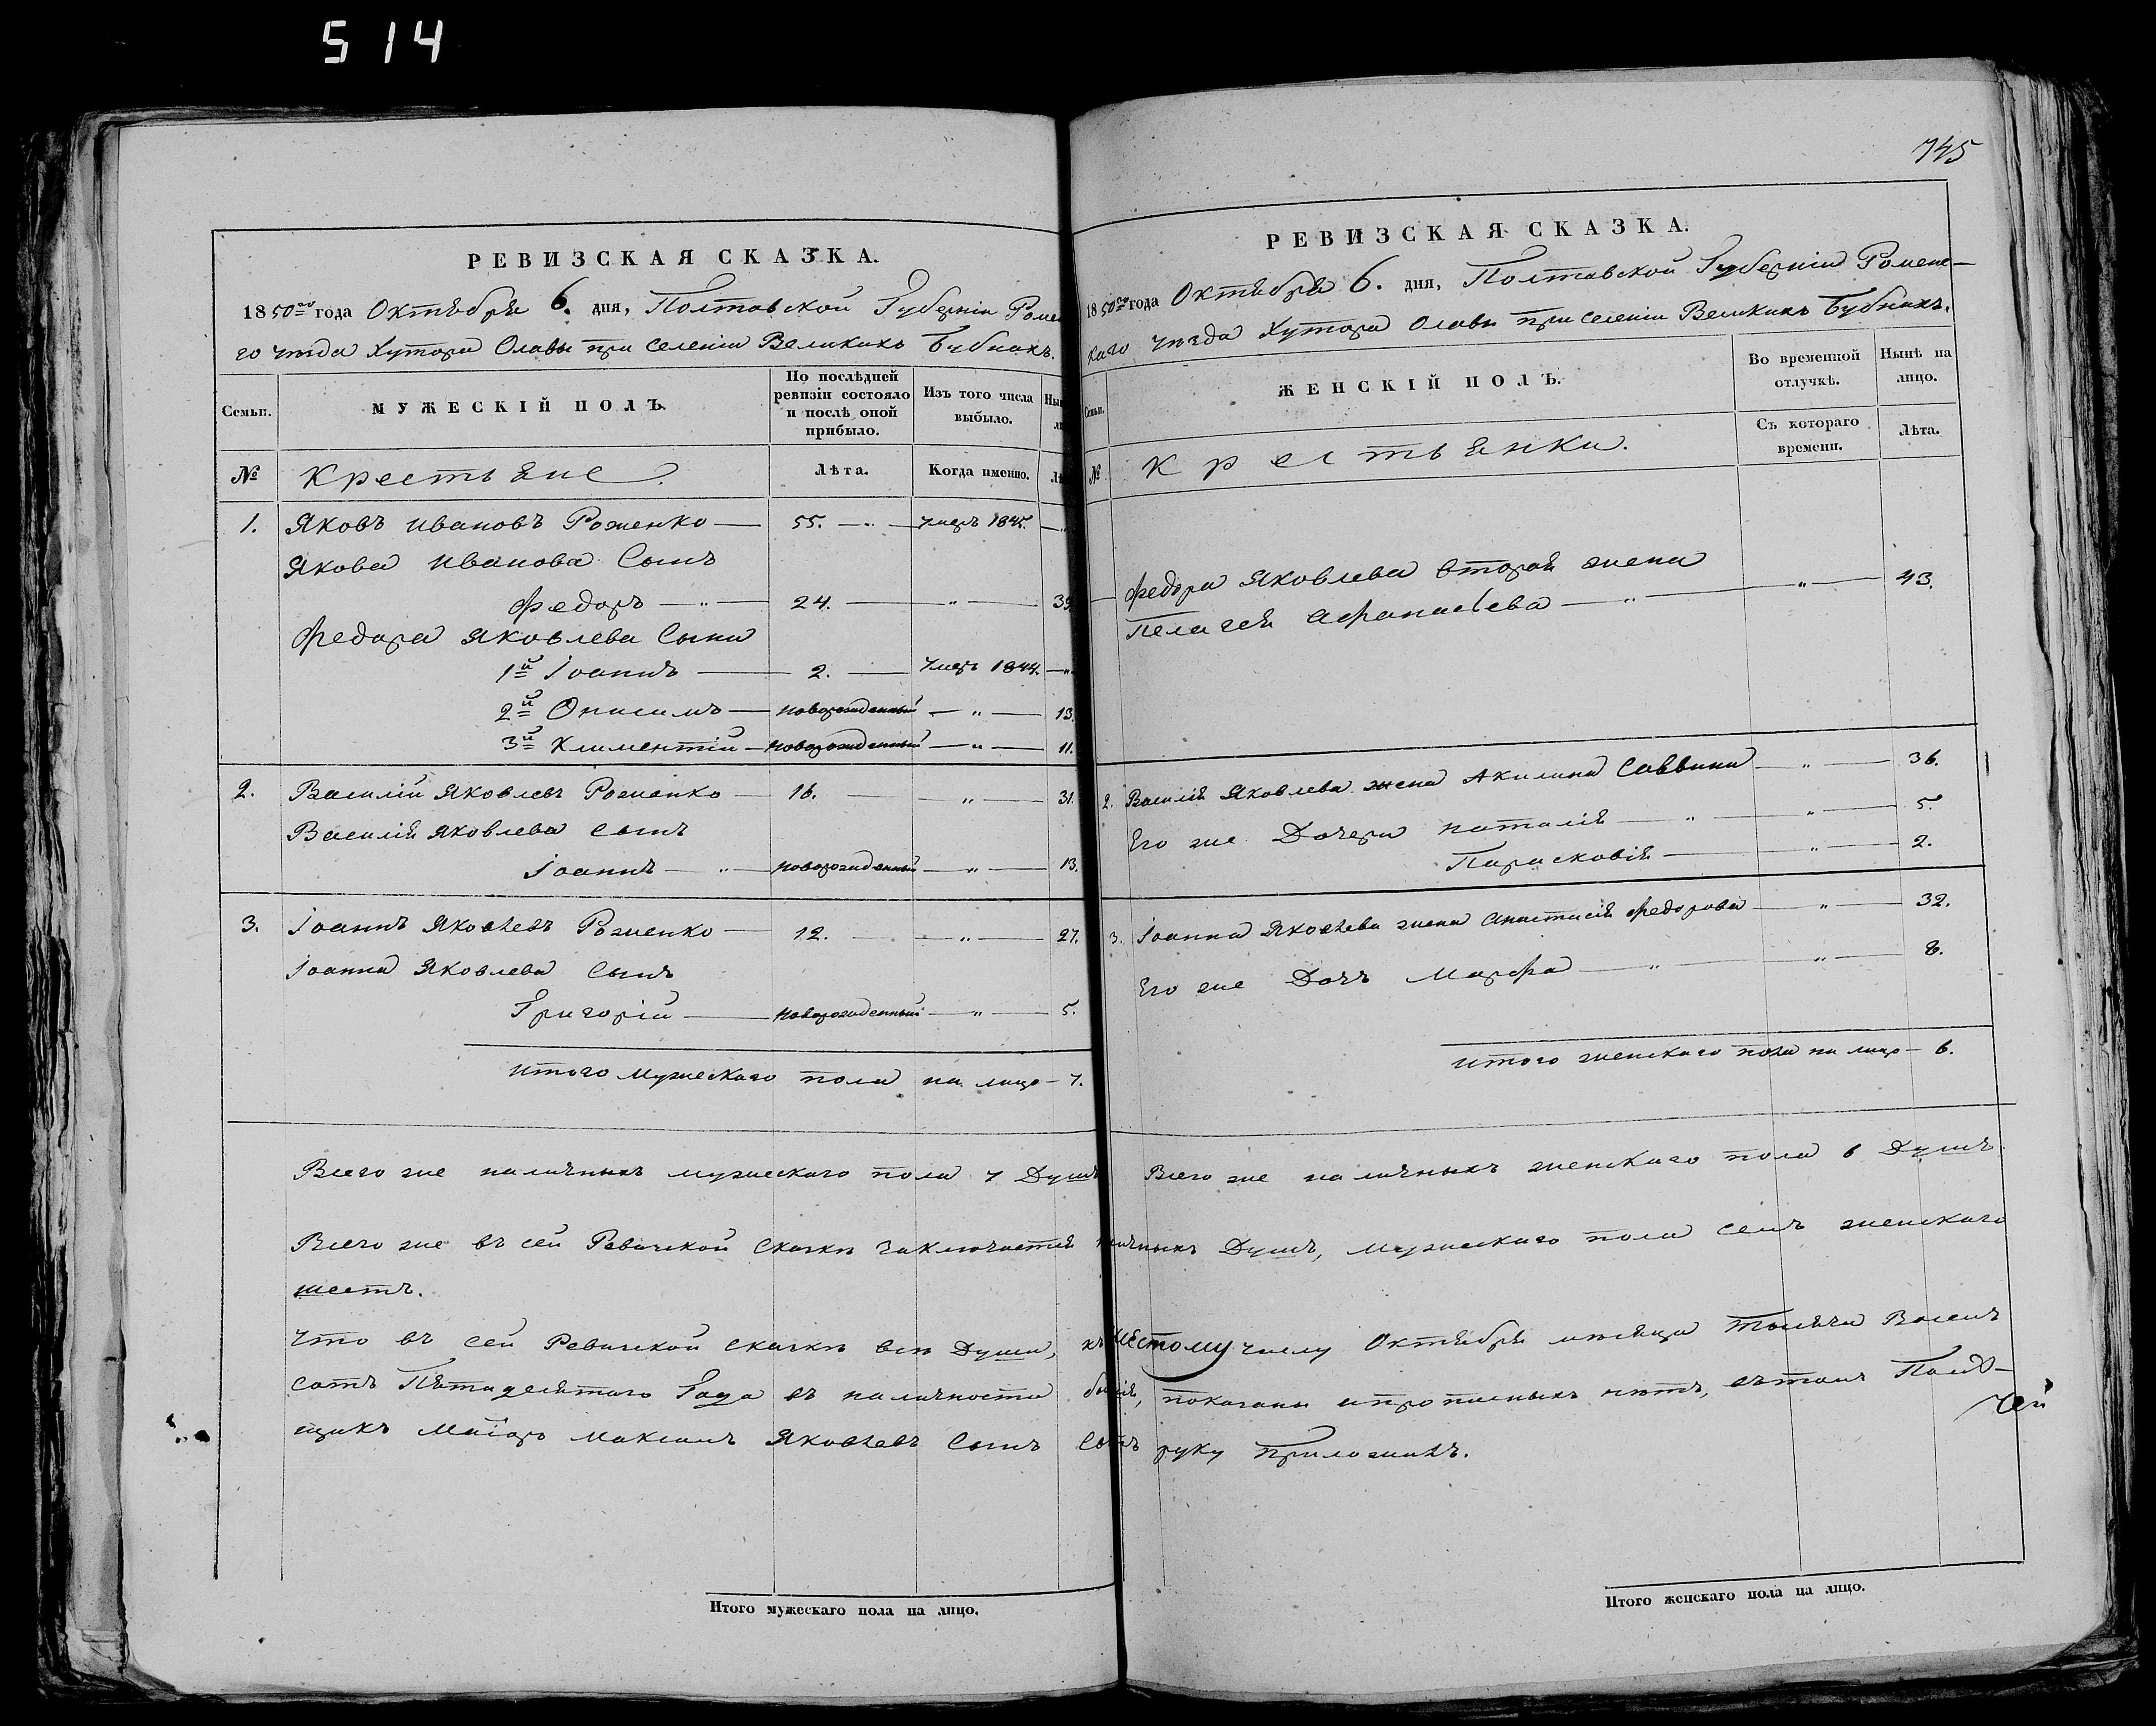 514
РЕВИЗСКАЯ СКАЗКА.
1850го года Октября 6. дня, Полтавской Губерніи Ромен
го уѣзда Хутора Олавы при селеніи Великихъ Бубнахъ.
Семьи.
МУЖЕСКІЙ ПОЛЪ.
По послѣдней ревизіи состояло и послѣ оной прибыло.
Изъ того числа выбыло.
№
Крестьяне.
Лѣта.
Когда именно.
1. Яковъ Ивановъ Роженко — 55. — умеръ 184
Якова Иванова Сынъ
Федоръ — " — 24. — " — 39
Федора Яковлева Сыны
1й Іоаннъ — 2. — умеръ 1844. — "
2й Онисимъ — новорожденный — " — 13.
3й Климентій — новорожденный — " — 11.
2. Василій Яковлевъ Роженко — 16. — " — 31.
Василія Яковлева Сынъ
Іоаннъ — " — новорожденный — " — 13.
3. Іоаннъ Яковлевъ Роженко — 12. — " — 27.
Іоанна Яковлева Сынъ
Григорій — новорожденный — " — 5.
Итого мужескаго пола на лицо — 7.
Всего же наличныхъ мужескаго пола 7 Душъ
Всего же въ сей Ревизской Сказкѣ заключается
шесть.
Что въ сей Ревизской Сказкѣ всѣ Души, къ
сотъ Пятидесятаго Года въ наличности
щикъ Маіоръ Максимъ Яковлевъ Сынъ
745
РЕВИЗСКАЯ СКАЗКА.
1850го года Октября 6. дня, Полтавской Губерніи Ромен—
скаго уѣзда Хутора Олавы при селеніи Великихъ Бубнахъ.
Семьи.
ЖЕНСКІЙ ПОЛЪ.
Во временной отлучкѣ.
Нынѣ на лицо.
№
Крестьянки.
Съ котораго времени.
Лѣта.
Федора Яковлева вторая жена
Пелагея Афанасьева — " — " — 43.
2. Василія Яковлева жена Акилина Саввина — " — 36.
Его же Дочери Наталія — " — " — 5.
Парасковія — " — 2.
3. Іоанна Яковлева жена Анастасія Федорова — " — 32.
Его же Дочь Марфа — " — " — 8.
Итого женскаго пола на лицо — 6.
Всего же наличныхъ женскаго пола 6 Душъ
Душъ, мужескаго пола семь женскаго
шестому числу Октября мѣсяца Тысяча Восемь
показаны и прописныхъ нѣтъ, въ томъ Помѣ—
руку приложилъ.
Итого мужескаго пола на лицо.
Итого женскаго пола на лицо.